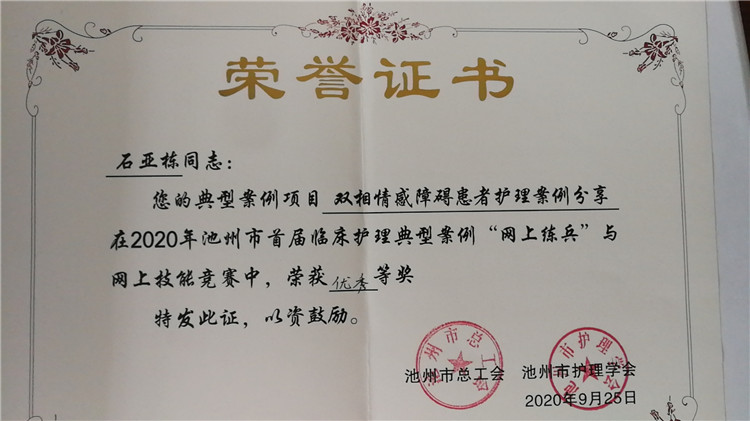 荣誉证书
石亚栋同志：
您的典型案例项目 双相情感障碍患者护理案例分享
在2020年池州市首届临床护理典型案例“网上练兵”与
网上技能竞赛中，荣获优秀等奖
特发此证，以资鼓励。
池州市总工会
池州市护理学会
池州市总工会 池州市护理学会
2020年9月25日